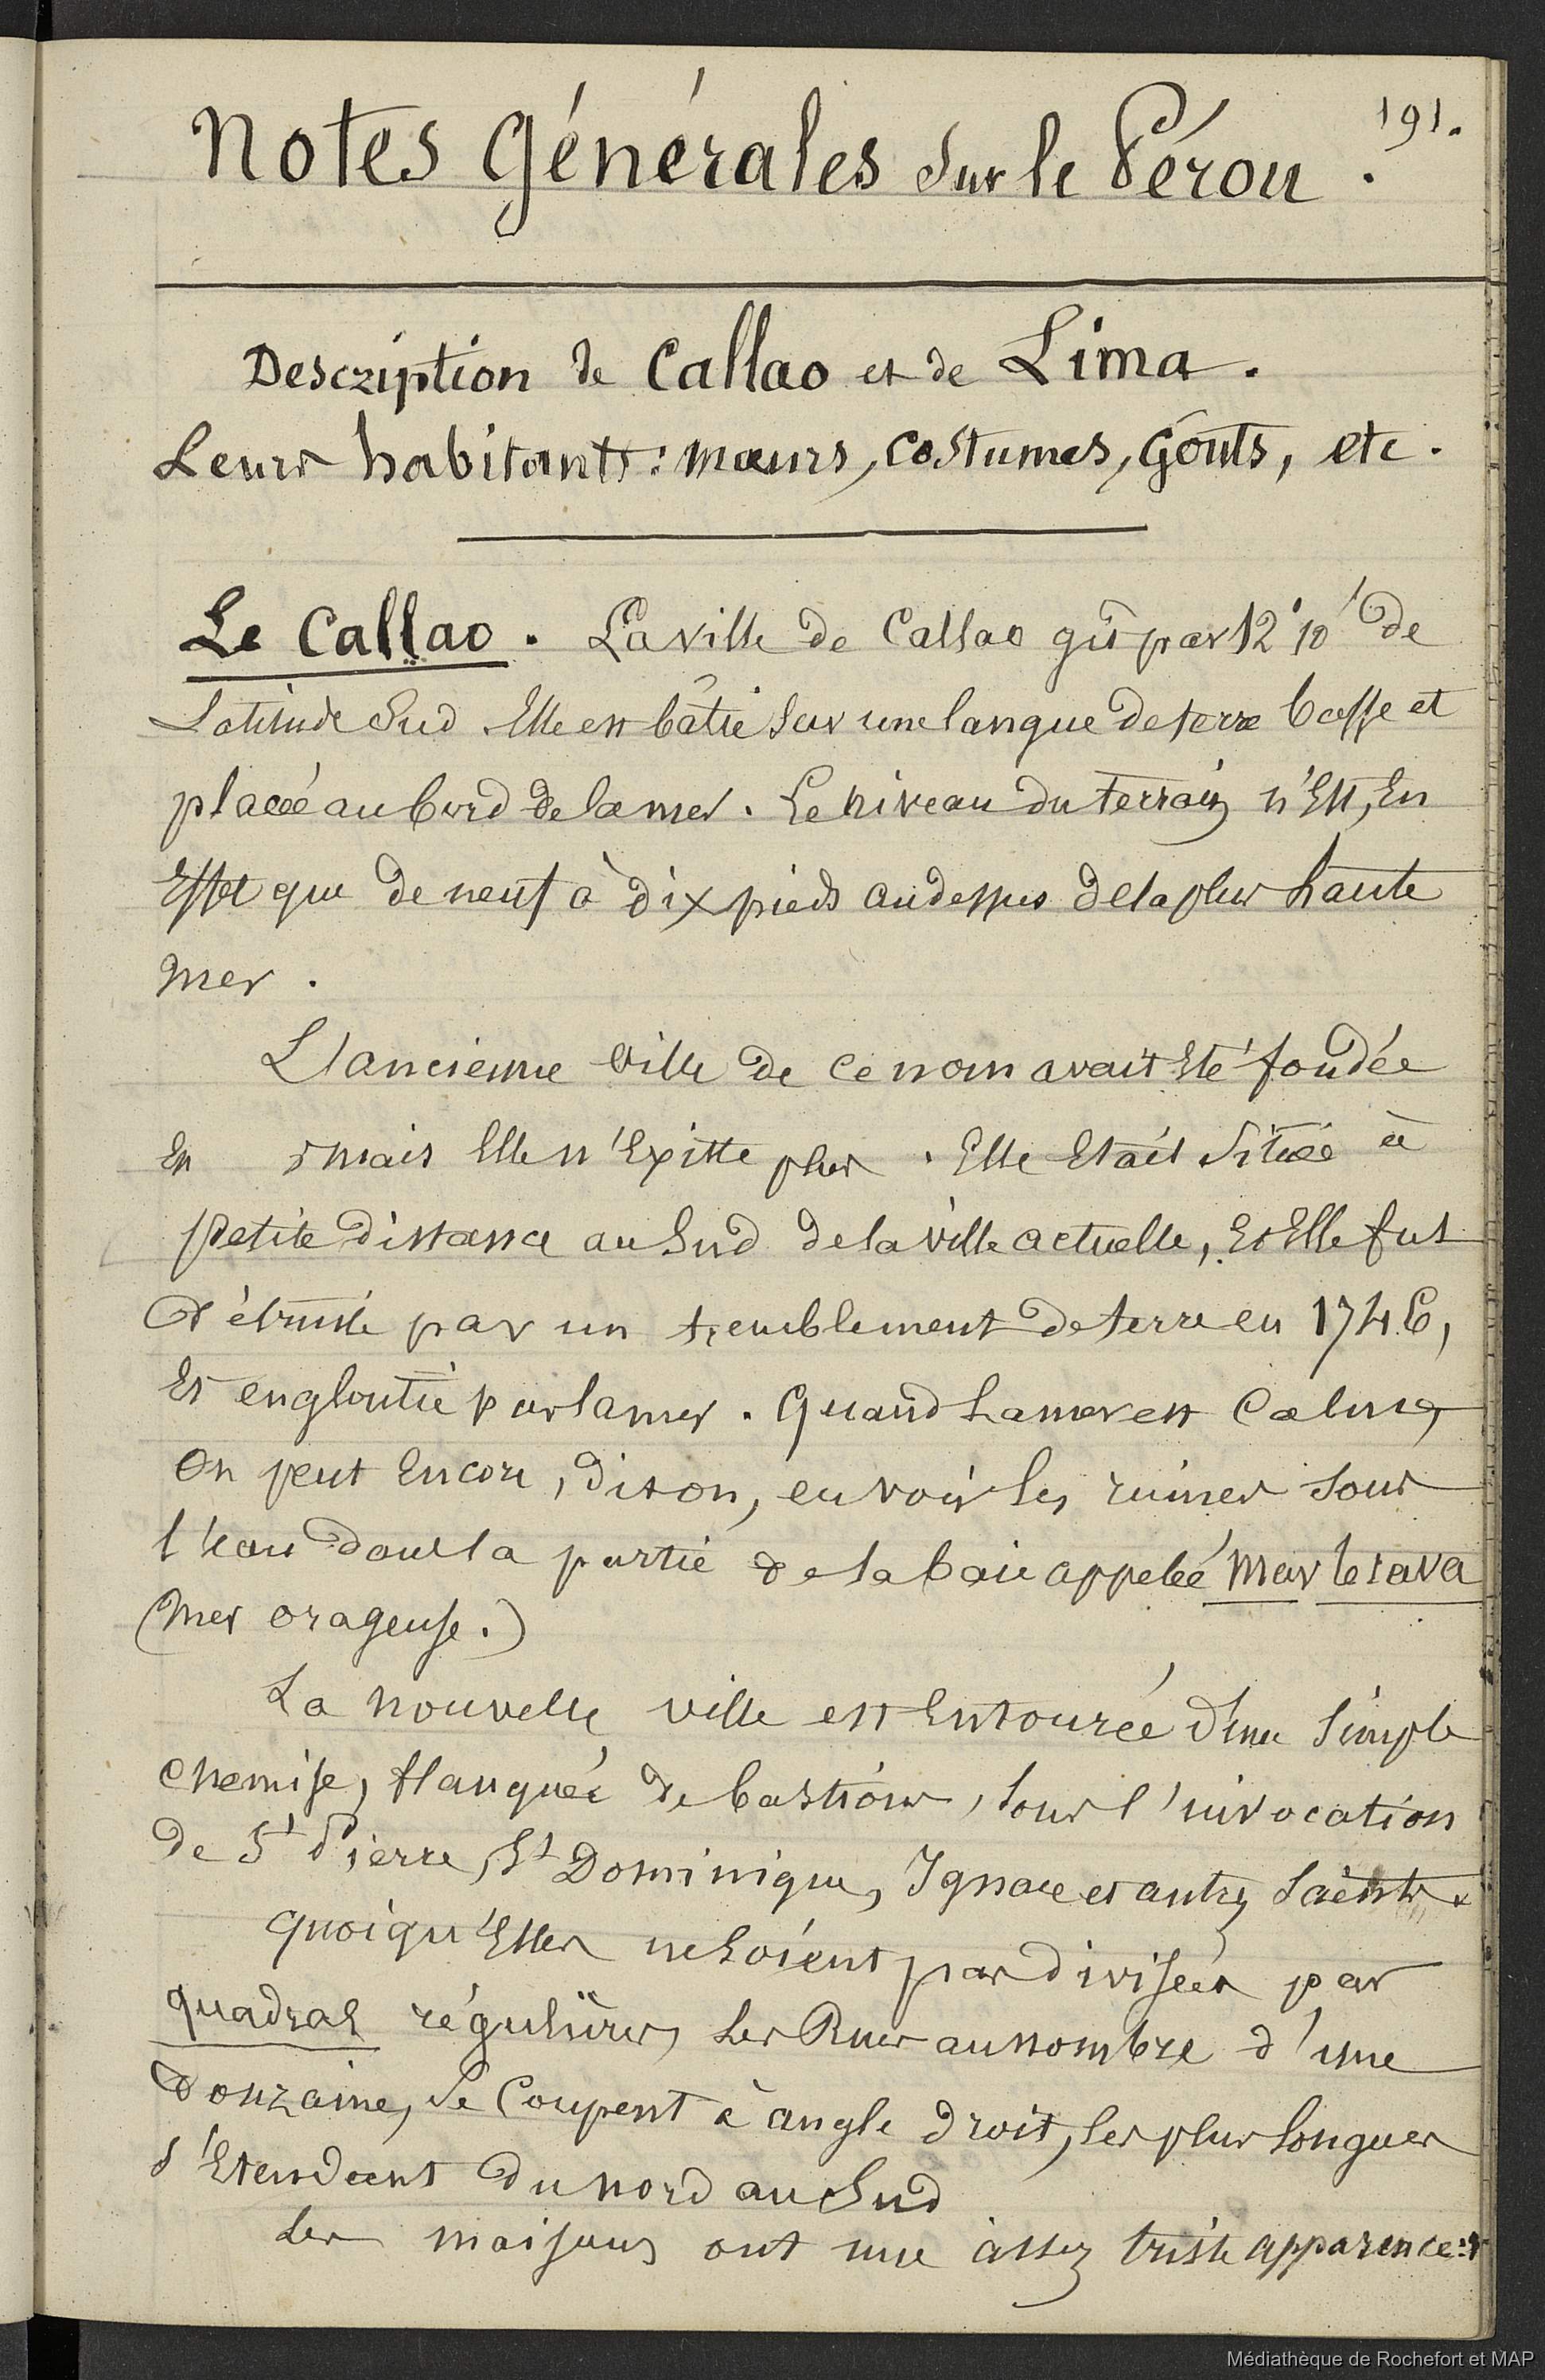 191.
Notes Générales sur le Pérou.
Description de Callao et de Lima.
Leurs habitants: mœurs, costumes, Goûts, etc.
Le Callao. La ville de Callao gît par 12° 10' de
Latitude Sud. Elle est bâtie sur une langue de terre basse et
placée au bord de la mer. Le niveau du terrain n'Est, En
Effet que de neuf à dix pieds au dessus de la plus haute
mer.
L'ancienne ville de ce nom avait Eté fondée
En , mais Elle n'Existe plus. Elle Etait Située à
petite distance au Sud de la ville actuelle, Et Elle fut
détruite par un tremblement de terre en 1746,
Et engloutie par la mer. Quand La mer est Calme,
On peut Encore, dit on, en voir les ruines sous
l'eau dans la partie de la baie appelée Mar brava
(Mer orageuse.)
La nouvelle ville est Entourée d'une Simple
chemise, flanquée de bastions, sous l'invocation
de St Pierre, St Dominique, Ignace et autres Saints.
Quoiqu'Elles ne Soient pas divisées par
quadras régulières, Les Rues au nombre d'une
douzaine, se Coupent à angle droit, les plus longues
s'Etendent du nord au Sud
Les maisons ont une assez triste apparence:
Médiathèque de Rochefort et MAP